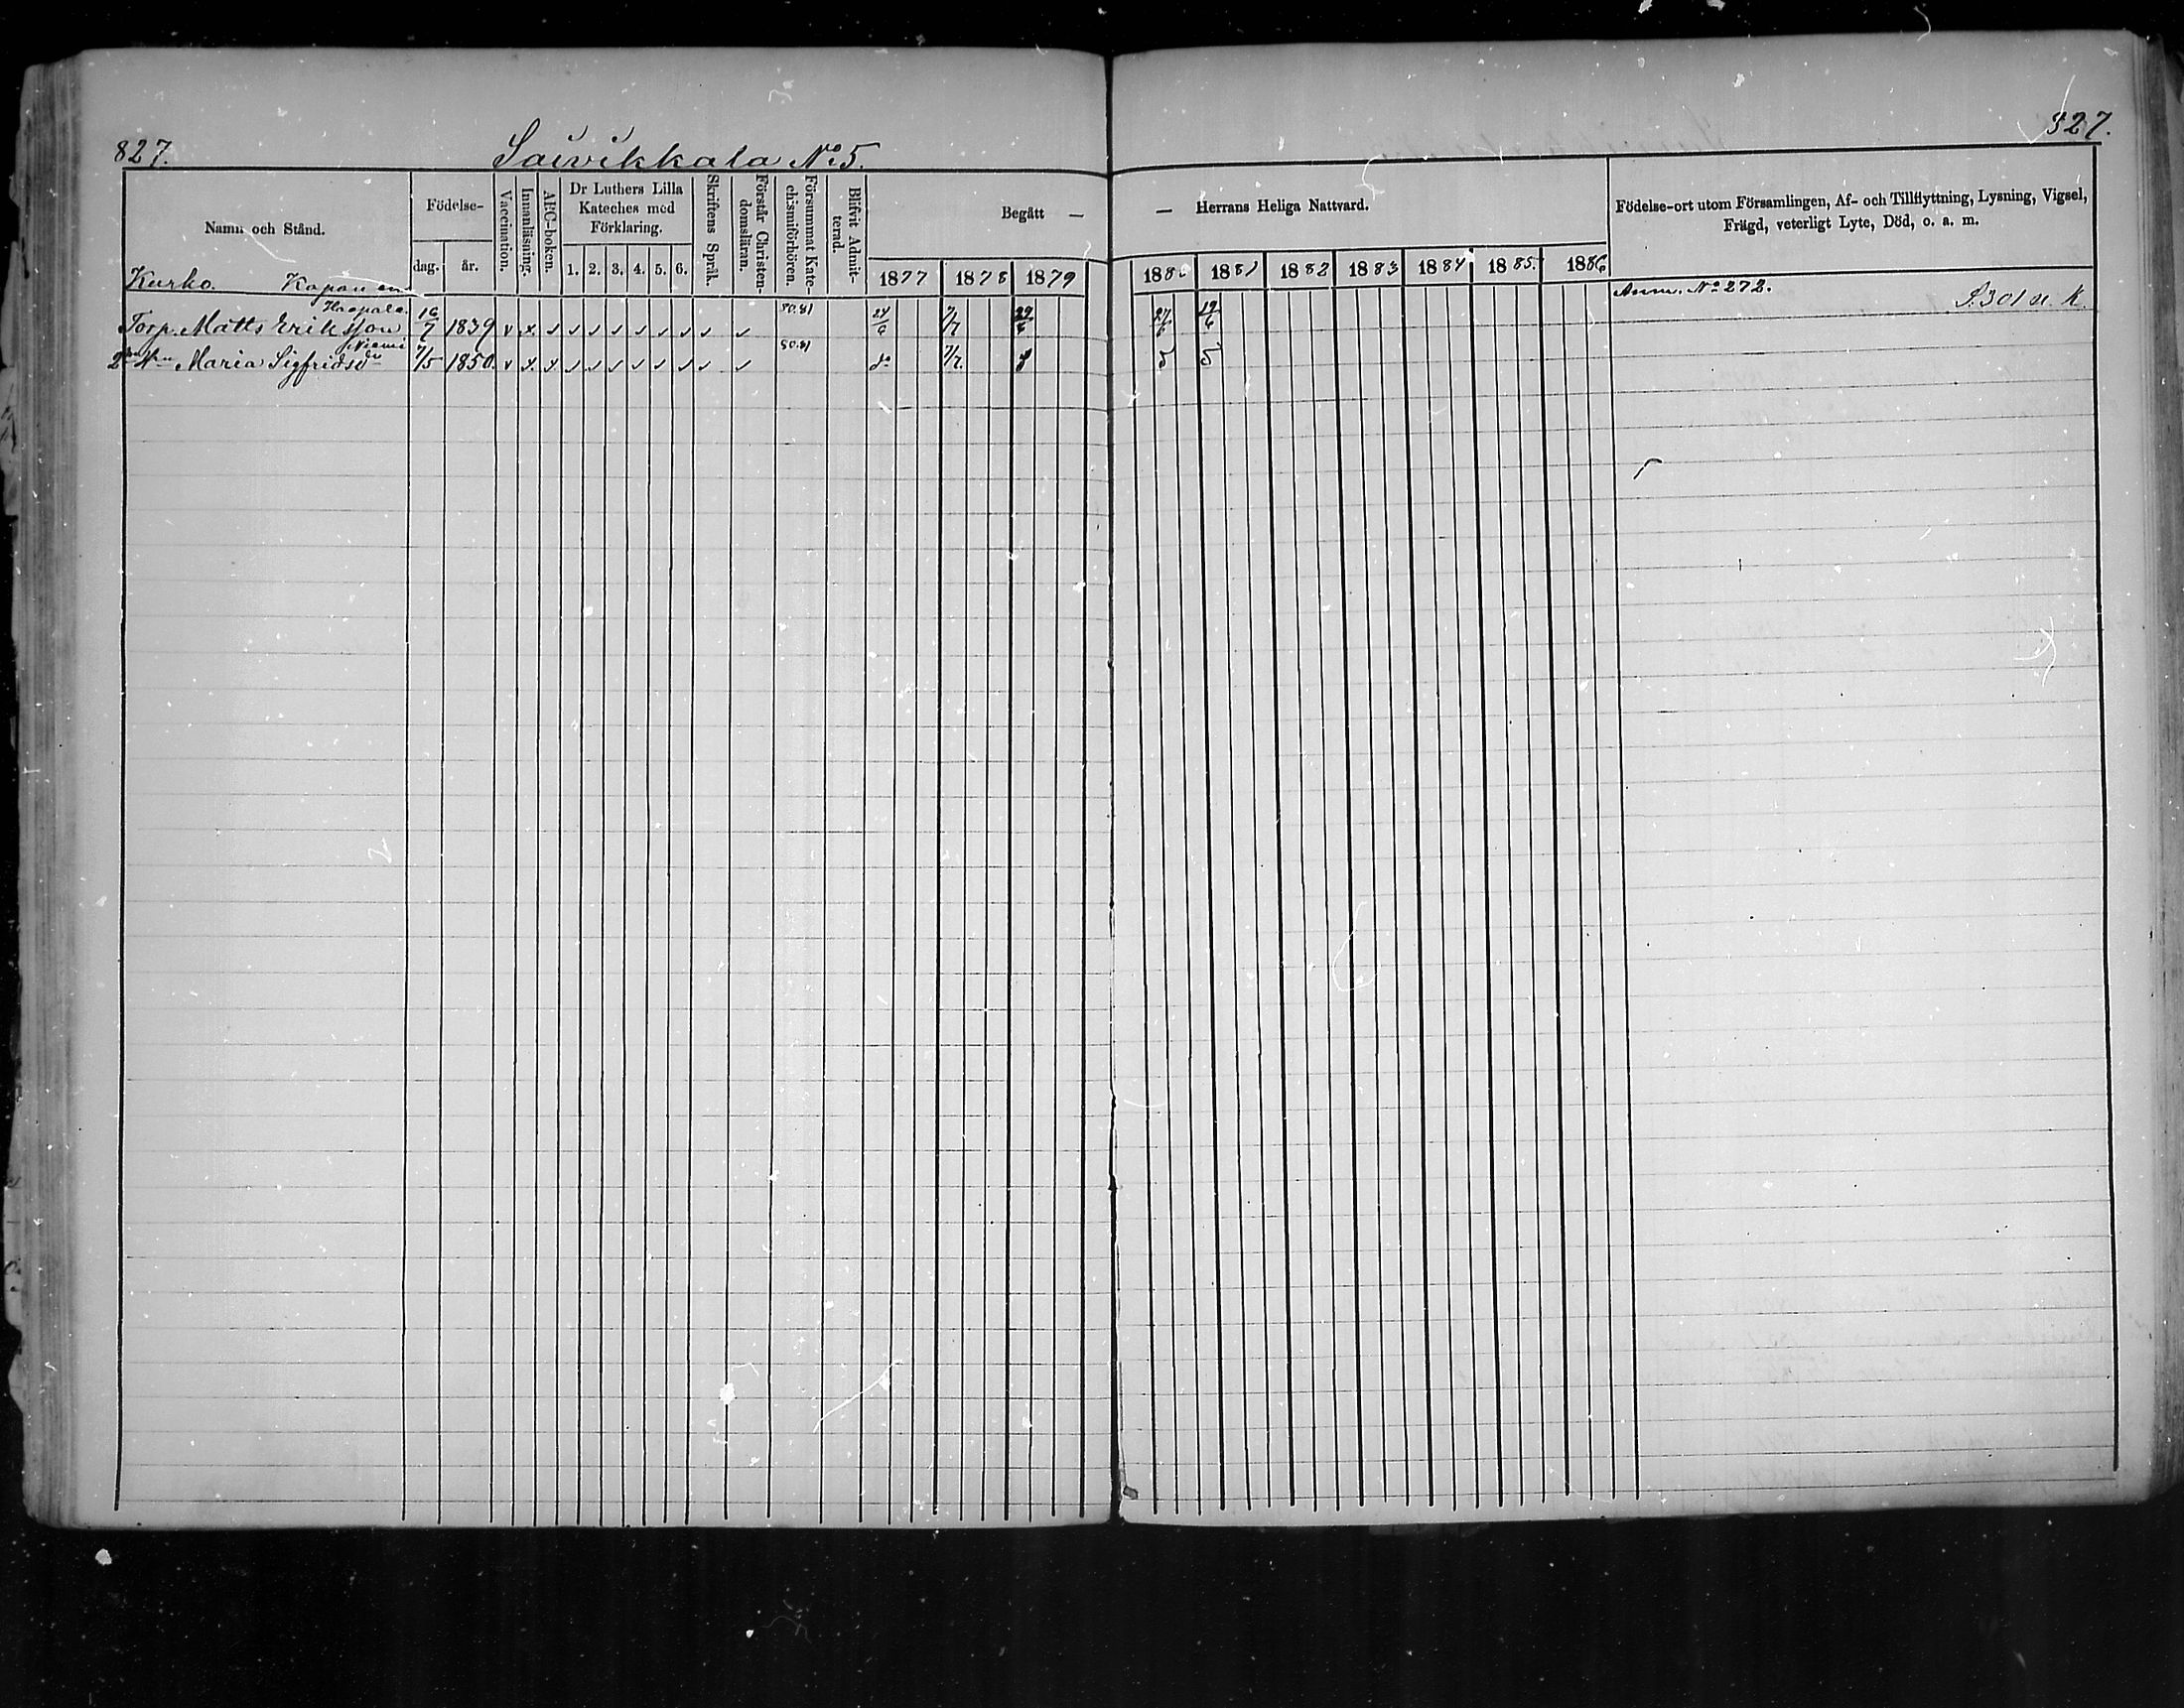 827.
Saivikkala No 5.
827.
Namn och Stånd.
Födelse-
dag.
år.
Vaccination.
Innanläsning.
ABC-boken.
Dr Luthers Lilla
Kateches med
Förklaring.
1. 2. 3. 4. 5. 6.
Skriftens Språk.
Förstår Christen-
domsläran.
Försummat Kate-
chismiförhören.
Blifvit Admit-
terad.
Begått —
— Herrans Heliga Nattvard.
1877 1878 1879
188 1881 1882 1883 1884 1885. 1886
Födelse-ort utom Församlingen, Af- och Tillflyttning, Lysning, Vigsel,
Frägd, veterligt Lyte, Död, o. a. m.
Kurko.
Anm. No 272.
Haapala.
Torp. Matts Eriksson 16/7 1839 v x v v v v v v v v v 80.81 24/6 7/7 29/6 27/6 19/6 S. 301 n. k.
Niemi
Maria Sigfridsdr 7/5 1850. v x v v v v v v v v v 80.81 do 7/7.